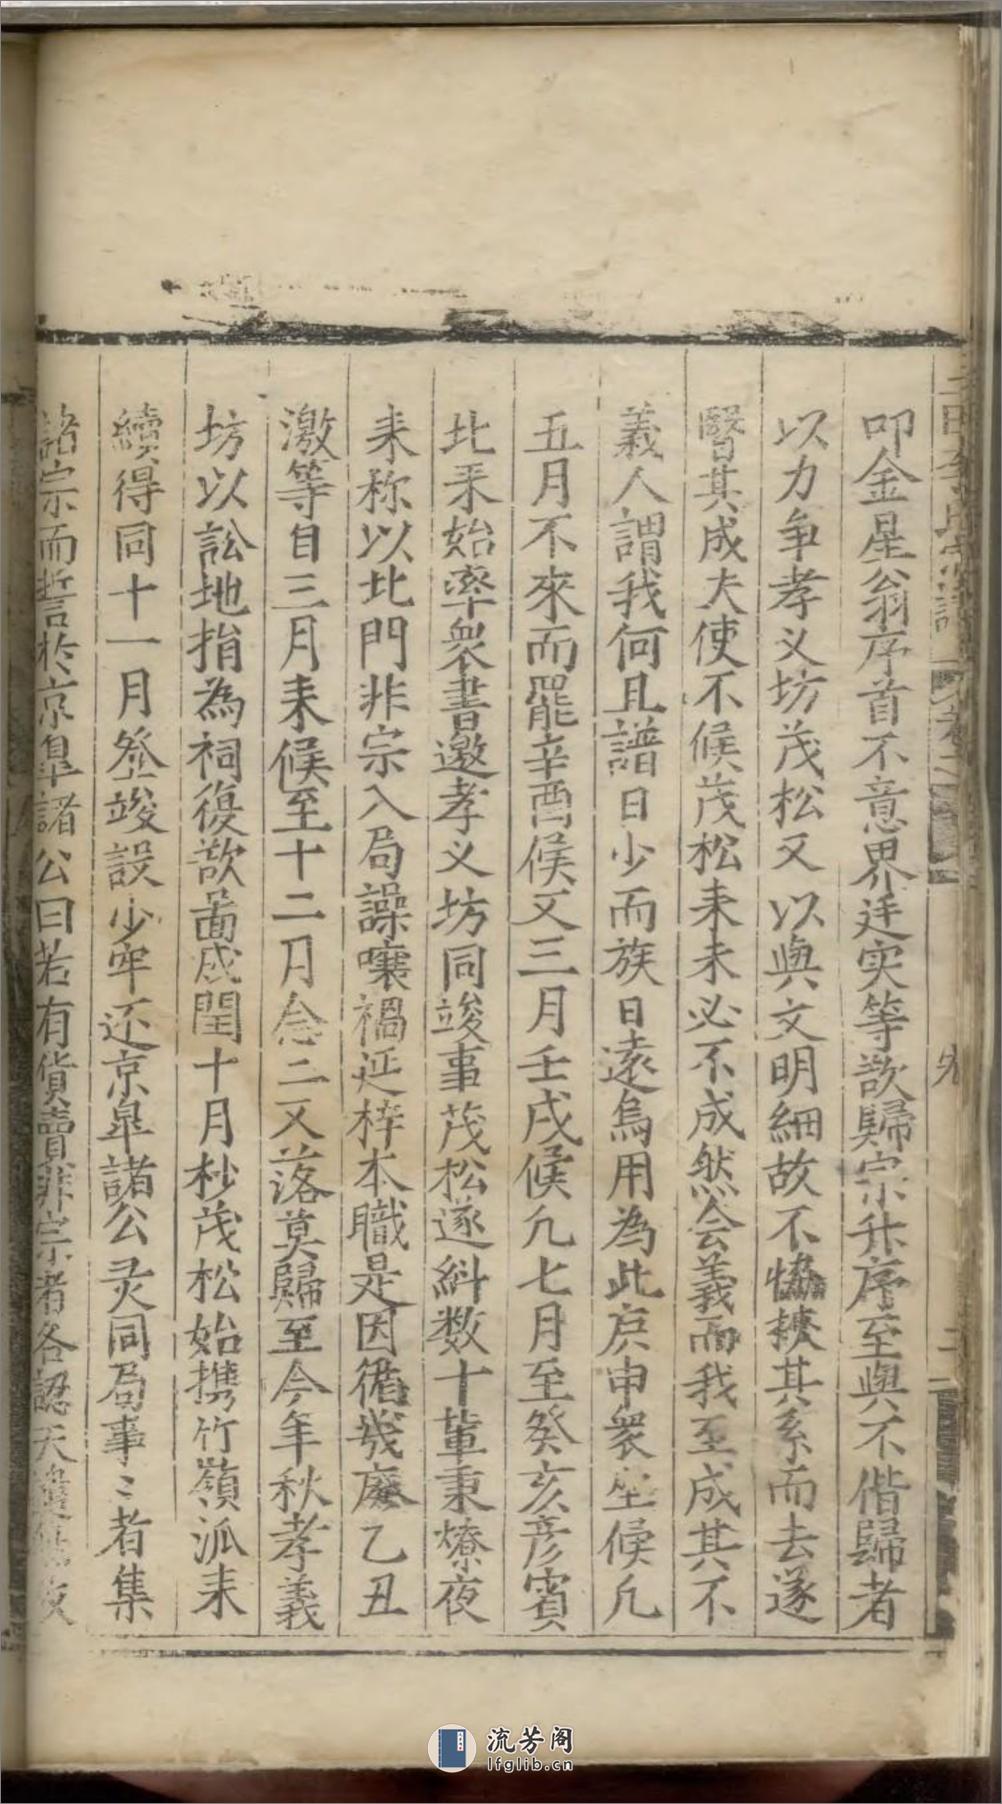 叩金星翁序首不意界廷实等欲歸宗升序至與不偕歸者
以力争孝义坊茂松又以與文明細故不恊轃其系而去遂
醫其成夫使不候茂松耒未必不成然会義而我至成其不
義人謂我何且譜日少而族日遠烏用為此庚申衆坐候凢
五月不來而罷辛酉候又三月壬戌候凢七月至癸亥彦賓
北釆始率衆書邀孝义坊同竣事茂松遂糾数十軰秉燎夜
耒称以北門非宗入局譟嚷禍延梓本職是因循幾廢乙丑
激等自三月耒候至十二月念二又落莫歸至今年秋孝義
坊以訟地指為祠復欲啚成閏十月杪茂松始携竹嶺派耒
續得同十一月登竣設少牢还京臯諸公灵同局事〻者集
諸宗而誓於京臯諸公曰若有貨賣非宗者各認天
卷之二
流芳阁
lfglib.cn